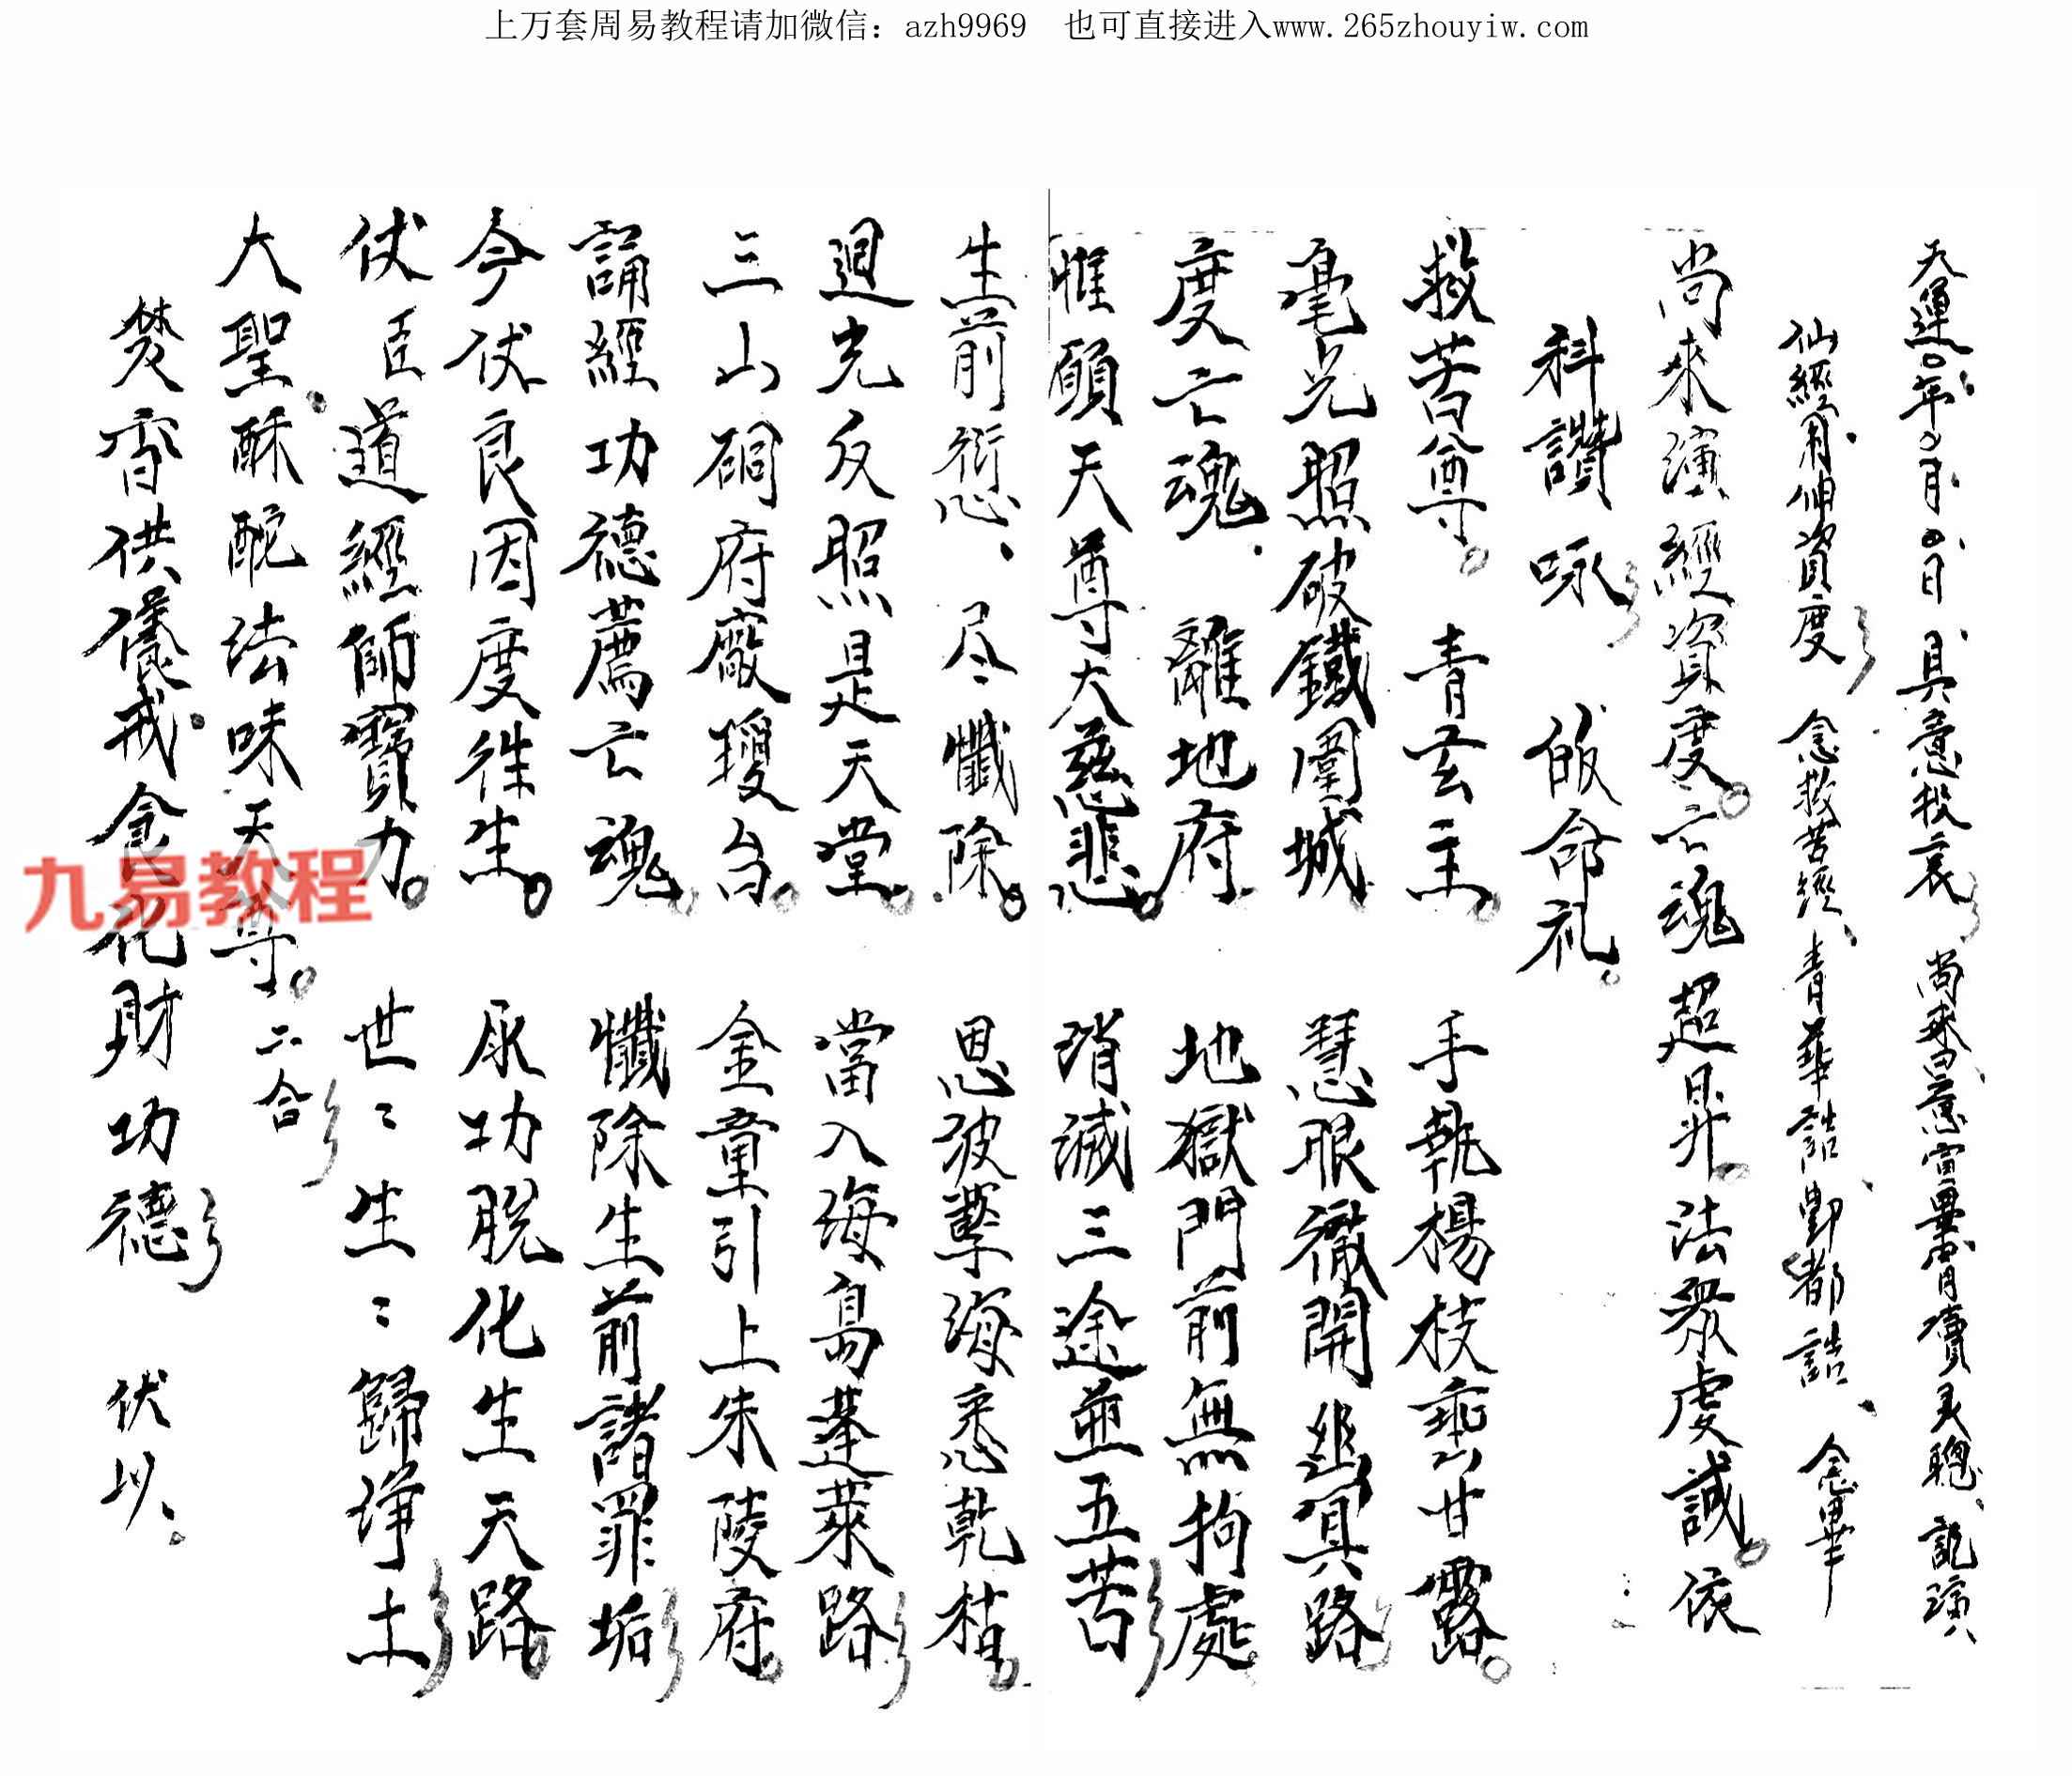 上万套周易教程请加微信：azh9969　也可直接进入www.265zhouyiw.com
天運〇年〇月〇日 具意投哀 尚來昌意宣畢 冐瀆灵聰 説演
仙經用伸資度 念救苦經 青華誥 酆都誥 念畢
尚來演經資度。亡魂超昇。法衆虔誠。依
科讚咏 皈命礼。
救苦尊。 青玄主。 手執楊枝垂甘露。
毫光照破鐵圍城 慧眼徹開幽冥路
度亡魂 離地府 地獄門前無拘處
惟願天尊大慈悲。 消滅三途並五苦
生前愆 尽懺除。 恩波孽海悉乾枯。
迴光反照是天堂。 當入海島蓬萊路
三山硐府廠瓊台。 金童引上朱陵府。
誦經功德薦亡魂。 懺除生前諸罪垢
今伏良因度徃生。 承功脫化生天路
伏臣道經師寶力。 世〻生〻歸净土
大聖酥酡法味天尊。二合
焚香供養戒食化財功德 伏以。
九易教程